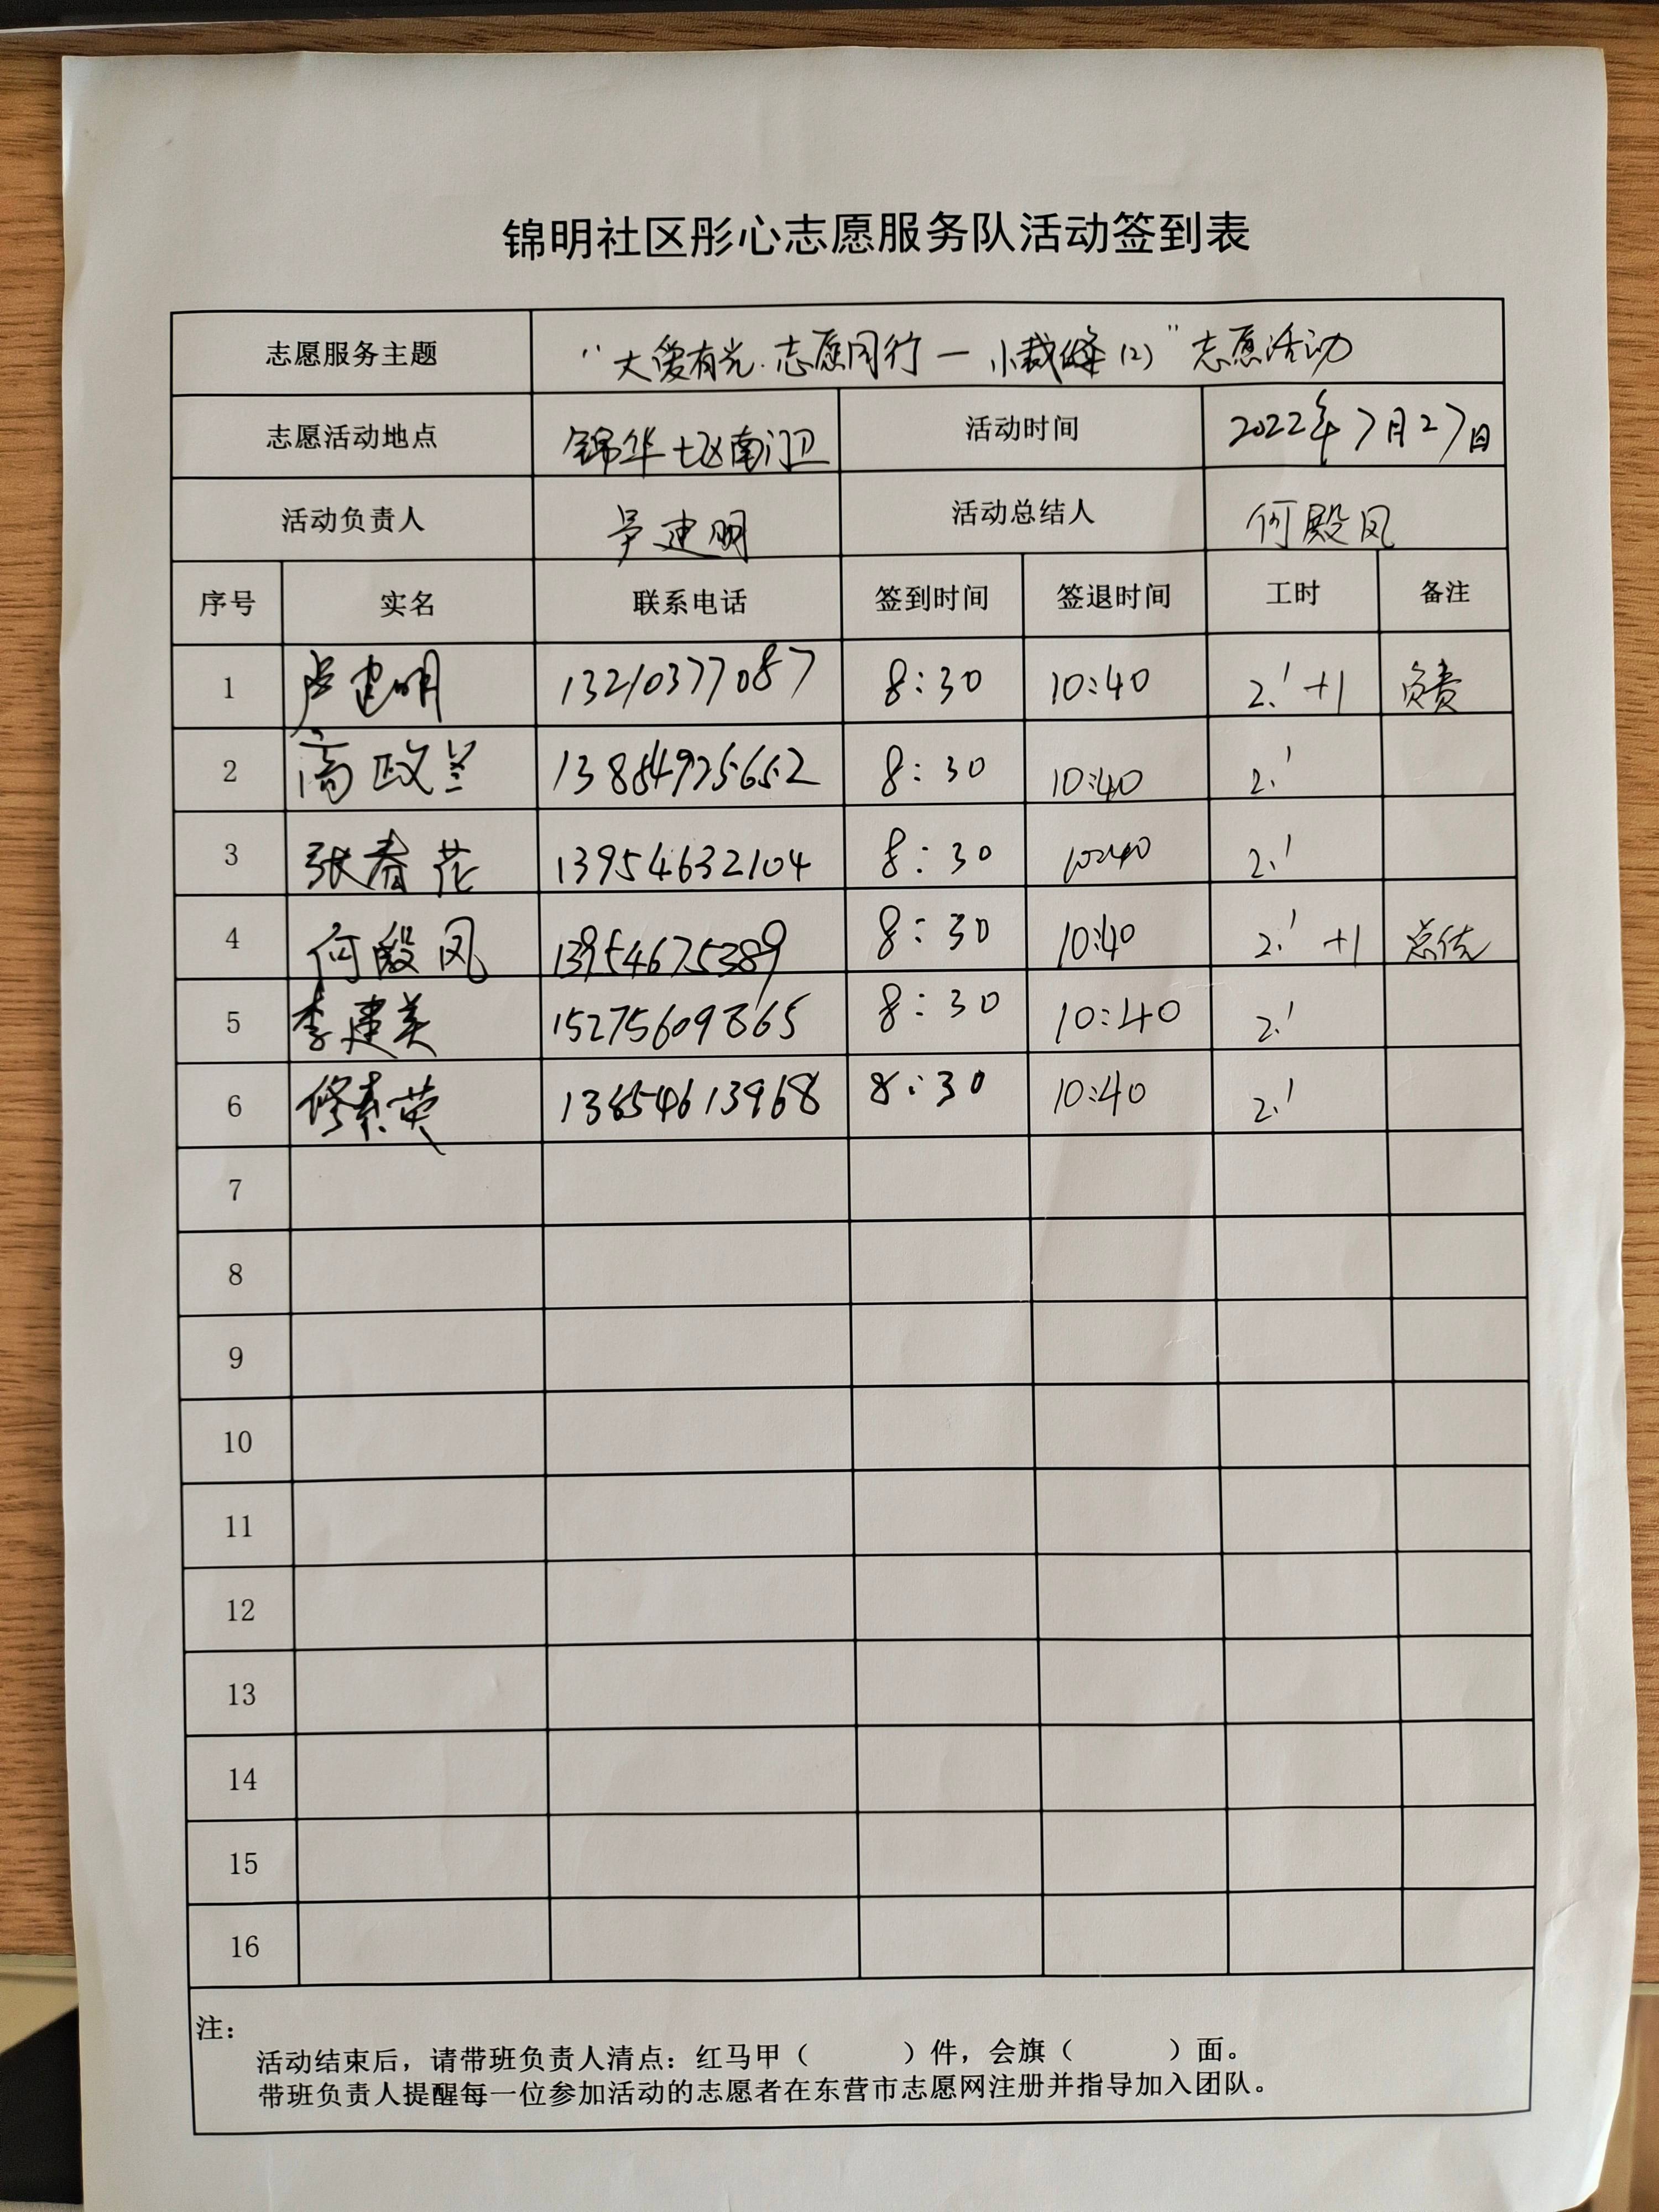 锦明社区彤心志愿服务队活动签到表
志愿服务主题 “大爱有光·志愿同行—小裁缝(2)”志愿活动
志愿活动地点 锦华七区南门卫 活动时间 2022年7月27日
活动负责人 建明 活动总结人 何殿凤
序号 实名 联系电话 签到时间 签退时间 工时 备注
1 卢建明 13210377087 8:30 10:40 2.1 +1 负责
2 高政兰 13884925652 8:30 10:40 2.1
3 张春花 13954632104 8:30 10:40 2.1
4 何殿凤 13954675389 8:30 10:40 2.1 +1 总结
5 李建美 15275609865 8:30 10:40 2.1
6 修素英 13654613968 8:30 10:40 2.1
7
8
9
10
11
12
13
14
15
16
注：
活动结束后，请带班负责人清点：红马甲（ ）件，会旗（ ）面。
带班负责人提醒每一位参加活动的志愿者在东营市志愿网注册并指导加入团队。